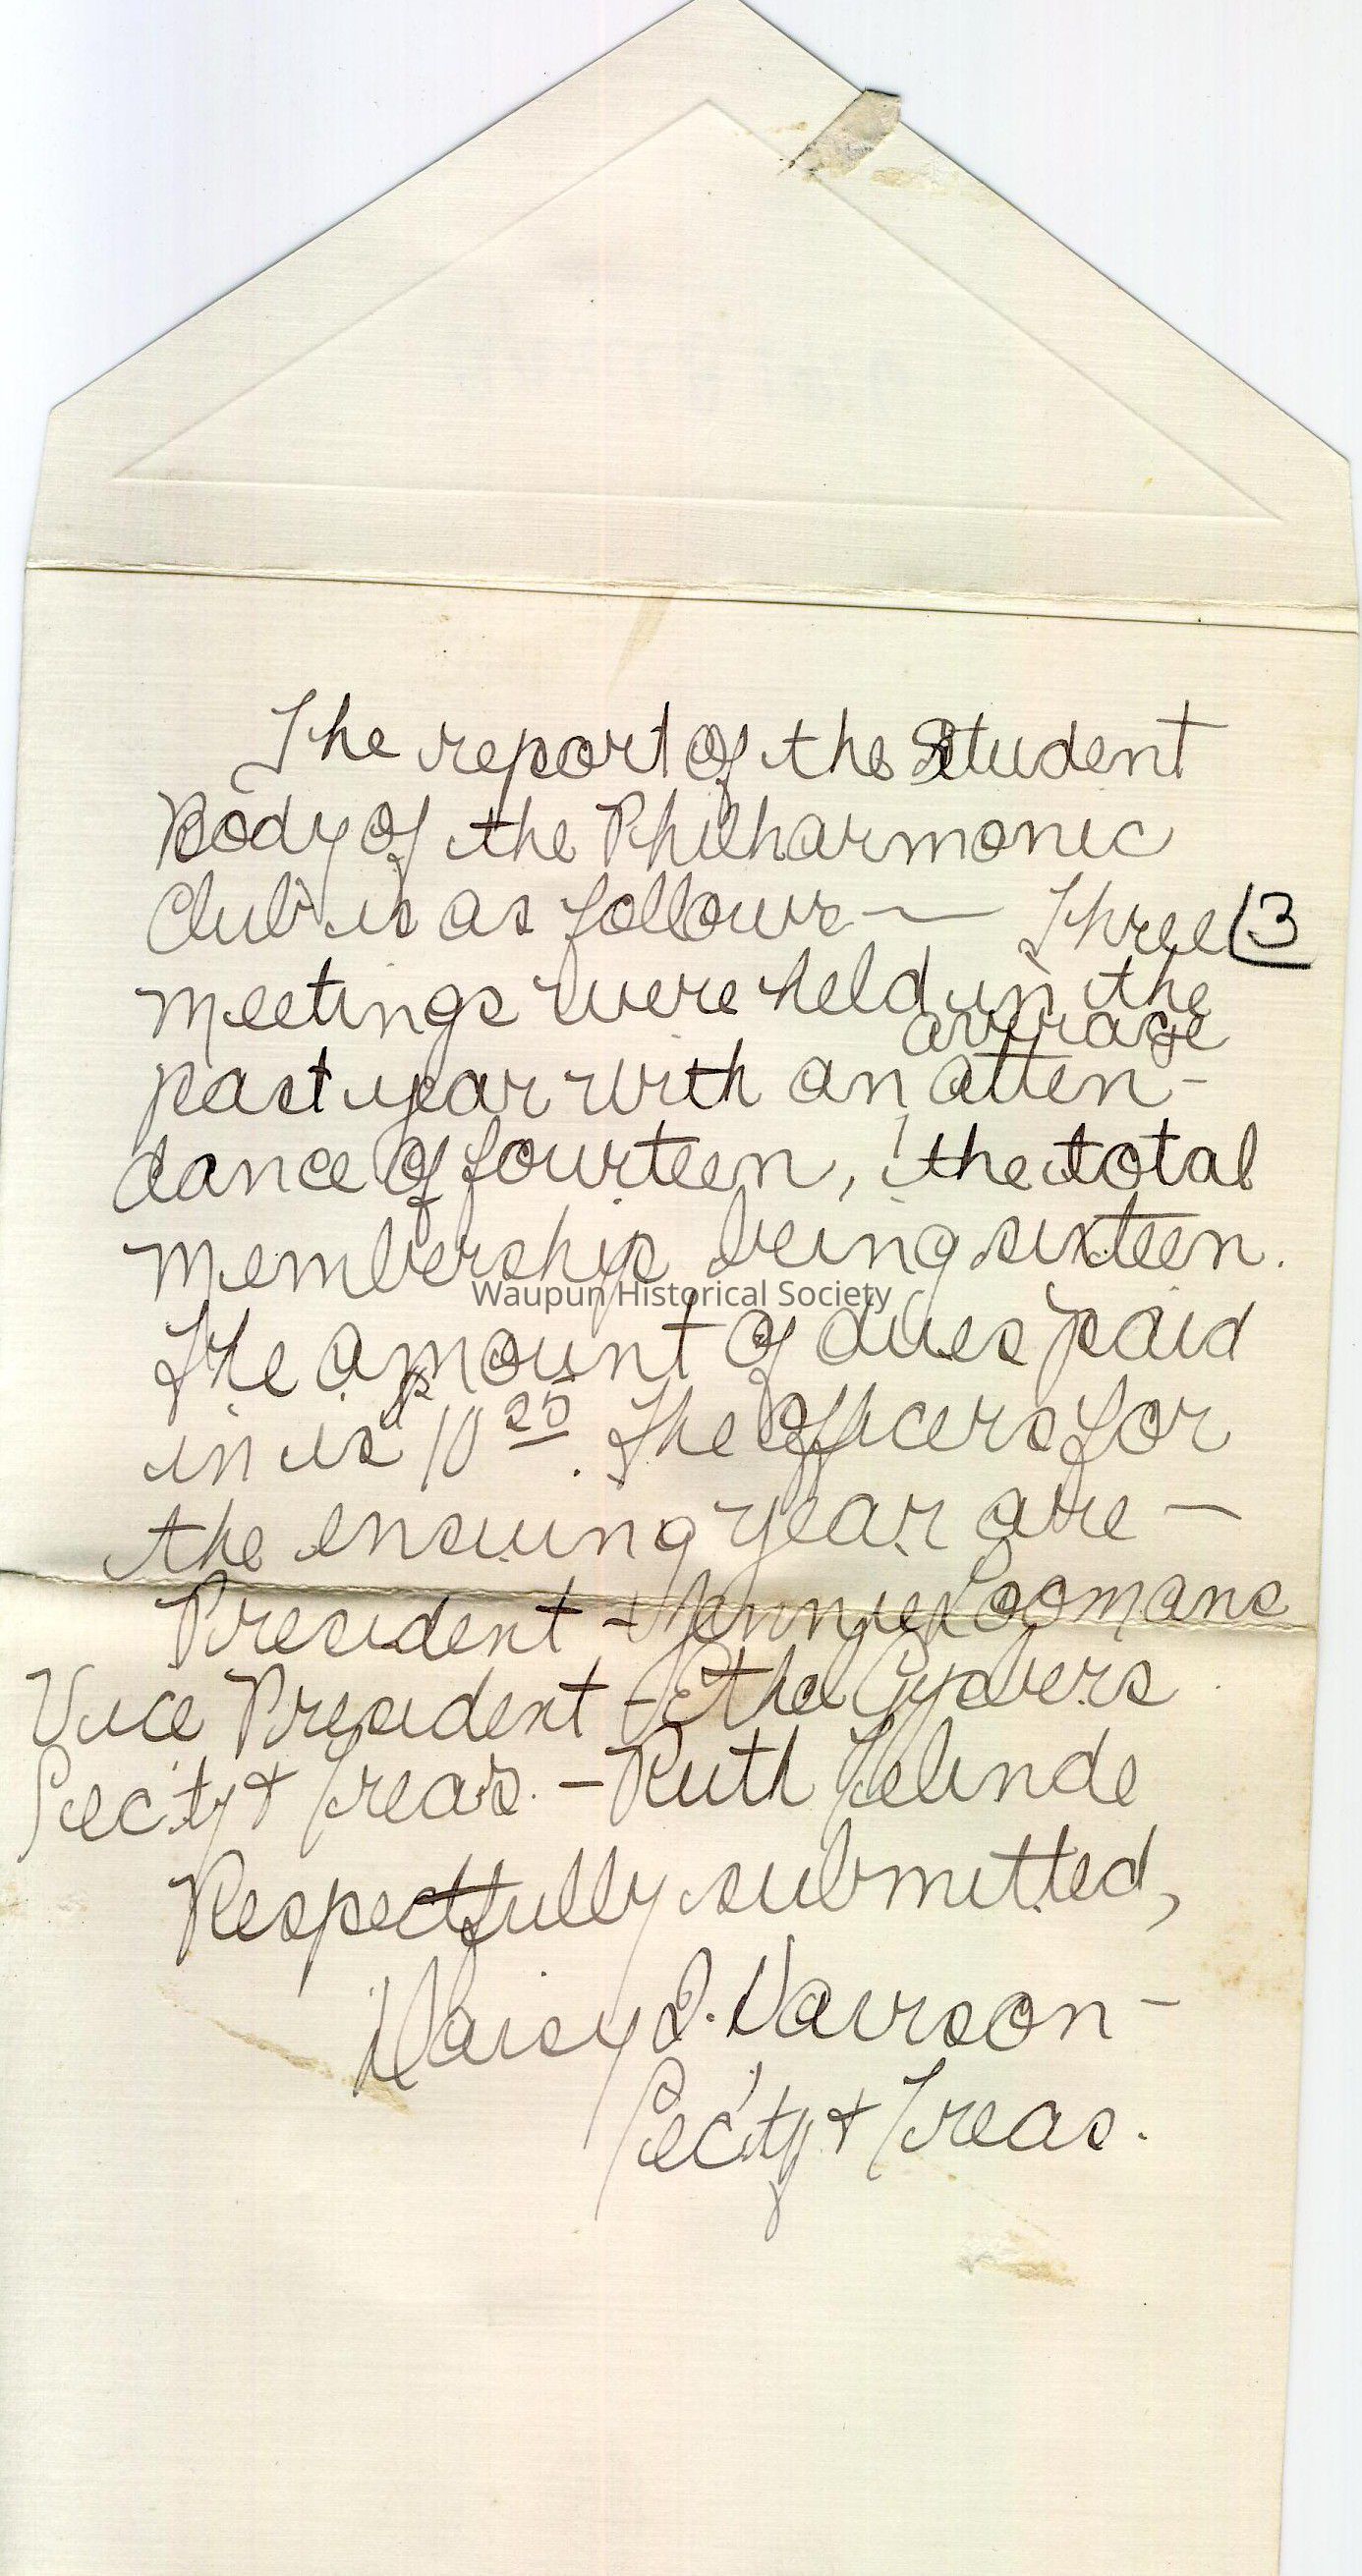 The report of the Student
Body of the Philharmonic
Club is as follows — Three (3
meetings were held in the
average
past year with an atten-
dance of fourteen, the total
membership being sixteen.
Waupun Historical Society
The amount of dues paid
in is $10 25. The officers for
the ensuing year are —
President - Loomans
Vice President - Ethel
Sec'ty & Treas. - Ruth
Respectfully submitted,
Daisy I. Davison -
Sec'ty & Treas.